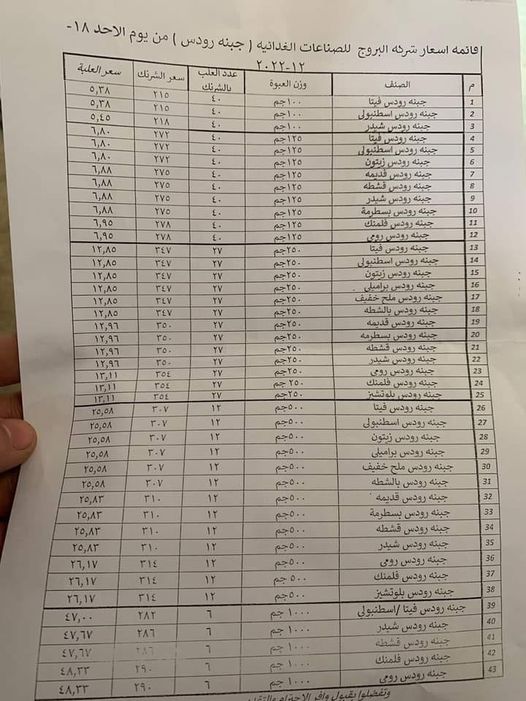 قائمه اسعار شركه البروج للصناعات الغذائيه ( جبنه رودس ) من يوم الاحد ١٨-
١٢-٢٠٢٢
م الصنف وزن العبوة عدد العلب بالشرنك سعر الشرنك سعر العلبة
1 جبنه رودس فيتا ١٠٠جم ٤٠ ٢١٥ ٥,٣٨
2 جبنه رودس اسطنبولى ١٠٠جم ٤٠ ٢١٥ ٥,٣٨
3 جبنه رودس شيدر ١٠٠جم ٤٠ ٢١٨ ٥,٤٥
4 جبنه رودس فيتا ١٢٥جم ٤٠ ٢٧٢ ٦,٨٠
5 جبنه رودس اسطنبولى ١٢٥جم ٤٠ ٢٧٢ ٦,٨٠
6 جبنه رودس زيتون ١٢٥جم ٤٠ ٢٧٢ ٦,٨٠
7 جبنه رودس قديمه ١٢٥جم ٤٠ ٢٧٥ ٦,٨٨
8 جبنه رودس قشطه ١٢٥جم ٤٠ ٢٧٥ ٦,٨٨
9 جبنه رودس شيدر ١٢٥جم ٤٠ ٢٧٥ ٦,٨٨
10 جبنه رودس بسطرمة ١٢٥جم ٤٠ ٢٧٥ ٦,٨٨
11 جبنه رودس فلمنك ١٢٥جم ٤٠ ٢٧٨ ٦,٩٥
12 جبنه رودس رومى ١٢٥جم ٤٠ ٢٧٨ ٦,٩٥
13 جبنه رودس فيتا ٢٥٠جم ٢٧ ٣٤٧ ١٢,٨٥
14 جبنه رودس اسطنبولى ٢٥٠جم ٢٧ ٣٤٧ ١٢,٨٥
15 جبنه رودس زيتون ٢٥٠جم ٢٧ ٣٤٧ ١٢,٨٥
16 جبنه رودس براميلى ٢٥٠جم ٢٧ ٣٤٧ ١٢,٨٥
17 جبنه رودس ملح خفيف ٢٥٠جم ٢٧ ٣٤٧ ١٢,٨٥
18 جبنه رودس بالشطه ٢٥٠جم ٢٧ ٣٤٧ ١٢,٨٥
19 جبنه رودس قديمه ٢٥٠جم ٢٧ ٣٥٠ ١٢,٩٦
20 جبنه رودس بسطرمه ٢٥٠جم ٢٧ ٣٥٠ ١٢,٩٦
21 جبنه رودس قشطه ٢٥٠جم ٢٧ ٣٥٠ ١٢,٩٦
22 جبنه رودس شيدر ٢٥٠جم ٢٧ ٣٥٠ ١٢,٩٦
23 جبنه رودس رومى ٢٥٠جم ٢٧ ٣٥٤ ١٣,١١
24 جبنه رودس فلمنك ٢٥٠جم ٢٧ ٣٥٤ ١٣,١١
25 جبنه رودس بلوتشيز ٢٥٠جم ٢٧ ٣٥٤ ١٣,١١
26 جبنه رودس فيتا ٥٠٠جم ١٢ ٣٠٧ ٢٥,٥٨
27 جبنه رودس اسطنبولى ٥٠٠جم ١٢ ٣٠٧ ٢٥,٥٨
28 جبنه رودس زيتون ٥٠٠جم ١٢ ٣٠٧ ٢٥,٥٨
29 جبنه رودس براميلى ٥٠٠جم ١٢ ٣٠٧ ٢٥,٥٨
30 جبنه رودس ملح خفيف ٥٠٠جم ١٢ ٣٠٧ ٢٥,٥٨
31 جبنه رودس بالشطه ٥٠٠جم ١٢ ٣٠٧ ٢٥,٥٨
32 جبنه رودس قديمه ٥٠٠جم ١٢ ٣١٠ ٢٥,٨٣
33 جبنه رودس بسطرمة ٥٠٠جم ١٢ ٣١٠ ٢٥,٨٣
34 جبنه رودس قشطه ٥٠٠جم ١٢ ٣١٠ ٢٥,٨٣
35 جبنه رودس شيدر ٥٠٠جم ١٢ ٣١٠ ٢٥,٨٣
36 جبنه رودس رومى ٥٠٠جم ١٢ ٣١٤ ٢٦,١٧
37 جبنه رودس فلمنك ٥٠٠جم ١٢ ٣١٤ ٢٦,١٧
38 جبنه رودس بلوتشيز ٥٠٠جم ١٢ ٣١٤ ٢٦,١٧
39 جبنه رودس فيتا /اسطنبولى ١٠٠٠ جم ٦ ٢٨٢ ٤٧,٠٠
40 جبنه رودس شيدر ١٠٠٠ جم ٦ ٢٨٦ ٤٧,٦٧
41 جبنه رودس قشطه ١٠٠٠ جم ٦ ٢٨٦ ٤٧,٦٧
42 جبنه رودس فلمنك ١٠٠٠ جم ٦ ٢٩٠ ٤٨,٣٣
43 جبنه رودس رومى ١٠٠٠ جم ٦ ٢٩٠ ٤٨,٣٣
وتفضلوا بقبول وافر الاحترام